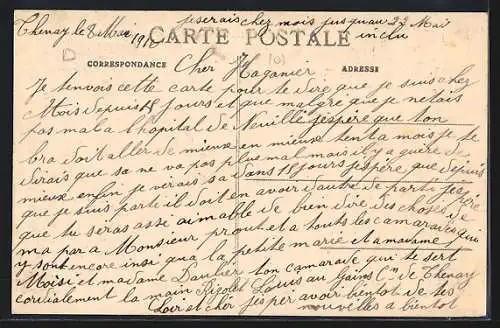 jeserais chez mois jusquau 22 Mai
inclu
Thenay le 8 Mai 1916
CARTE POSTALE
CORRESPONDANCE
ADRESSE
Cher Maganier
Je tenvois cette carte pour te dire que je suis chez
Mois depuis 15 jours et que malgre que je netais
pas mal a lhopital de Neuille jespère que ton
bra doit aller de mieux en mieux tent a mois je te
dirais que sa ne va pas plus mal mais il y a guère de
mieux enfin je verais sa dans 15 jours jespère que depuis
que je suis parti il doit en avoir dautre de parti jespère
que tu seras assé aimable de bien dire des choses de
ma par a Monsieur prout et a touts les camarades qui
y sont encore insi qua la petite marie et a madame
Moisi et madame Daubier ton camarade qui te sert
cordialement la main Rigolet Louis au Gains Cne de Thenay
Loir et cher jesper avoir bientot de tes
nouvelles a bientot